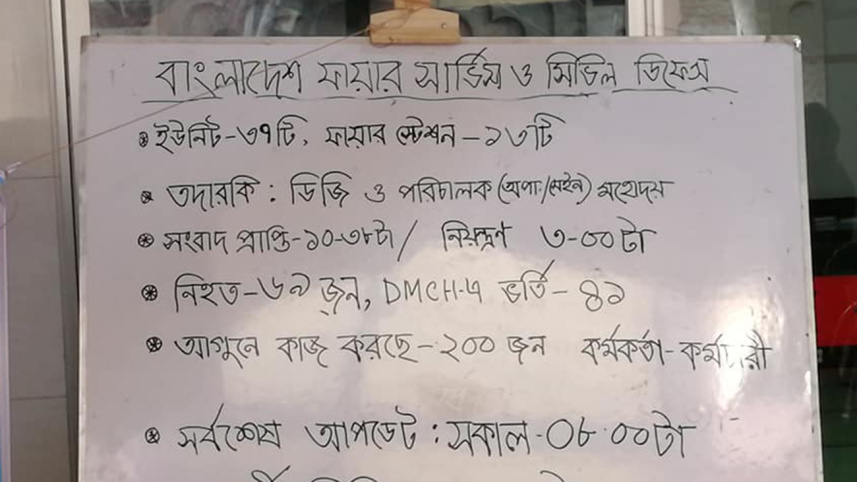 বাংলাদেশ ফায়ার সার্ভিস ও সিভিল ডিফেন্স
ইউনিট-৩৭টি, ফায়ার স্টেশন-১৩টি
তদারকি : ডিজি ও পরিচালক (অপাঃ/মেইন) মহোদয়
সংবাদ প্রাপ্তি-১০-৩৮টা / নিয়ন্ত্রণ ৩-০০টা
নিহত-৬৯ জন, DMCH-এ ভর্তি-৪১
আগুনে কাজ করছে-২০০ জন কর্মকর্তা-কর্মচারী
সর্বশেষ আপডেট : সকাল-০৮.০০টা